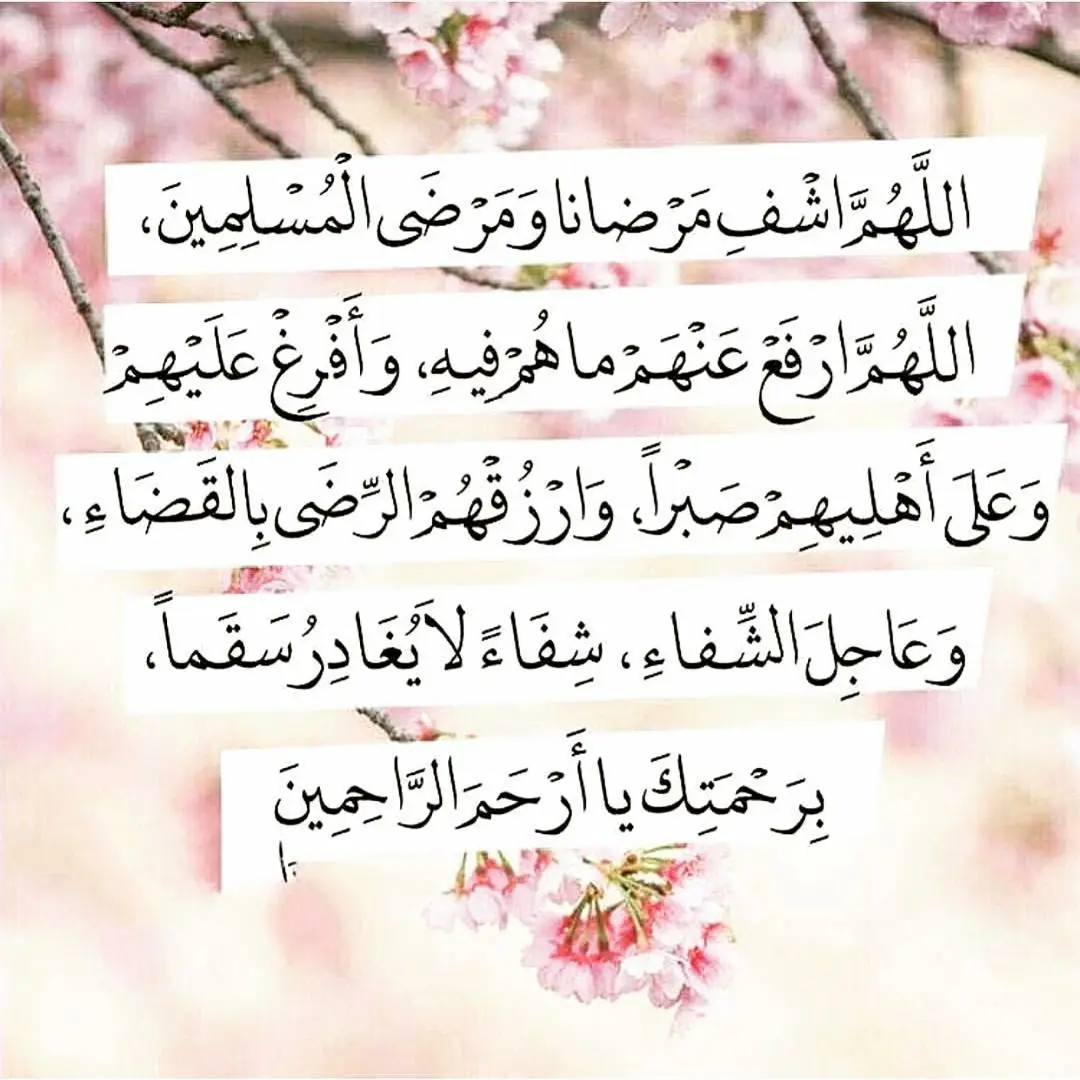 اللَّهُمَّ اشْفِ مَرْضانا وَمَرْضَى الْمُسْلِمِينَ،
اللَّهُمَّ ارْفَعْ عَنْهَمْ ما هُمْ فِيهِ، وَأَفْرِغْ عَلَيْهِمْ
وَعَلَى أَهْلِيهِمْ صَبْراً، وَارْزُقْهُمْ الرِّضَى بِالقَضَاءِ،
وَعَاجِلَ الشِّفاءِ، شِفَاءً لاَ يُغَادِرُ سَقَماً،
بِرَحْمَتِكَ يا أَرْحَمَ الرَّاحِمِينَ